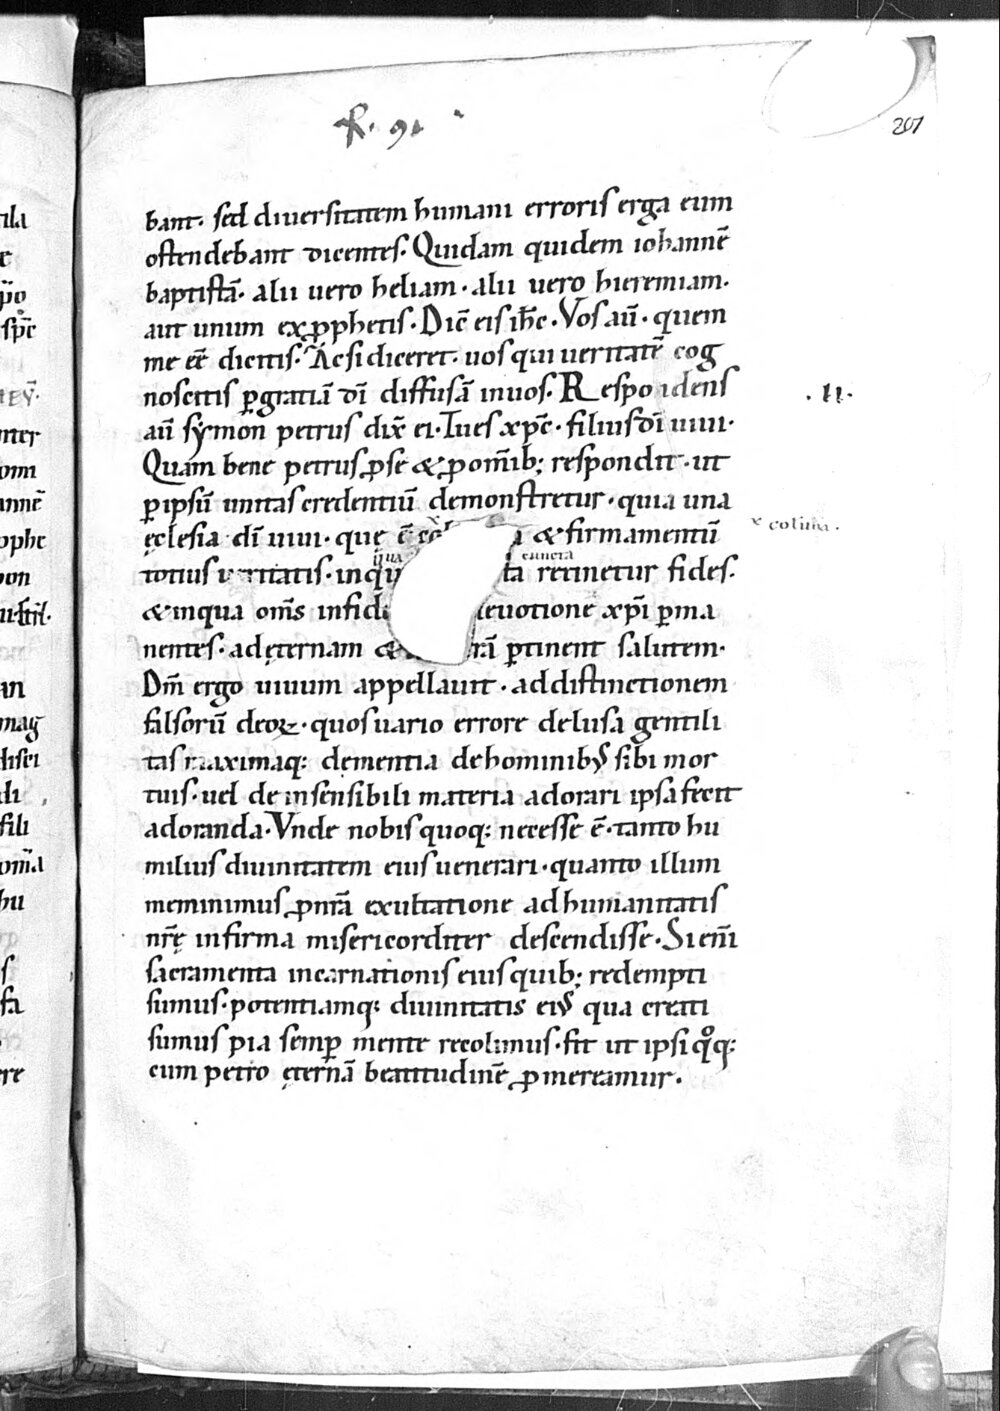 207
bant. sed diuersitatem humani erroris erga eum
ostendebant dicentes. Quidam quidem iohannē
baptistā. alii uero heliam. alii uero hieremiam.
aut unum ex ꝓphetis. Dic̄ eis ih̄c. Vos aū. quem
me eē dicitis. Ac si diceret. uos qui ueritatē cog
noscitis ꝑ gratiā dī diffusā in uos. Respondens
aū symon petrus dix̄ ei. Tu es xp̄c. filius dī uiui.
Quam bene petrus ꝓ se & ꝓ om̄ib; respondit. ut
ꝑ ipsū unitas credentiū demonstretur. quia una
ęclesia dī uiui. quę ē & firmamentū
totius ueritatis. in qua cuncta retinetur fides.
& in qua om̄s deuotione xp̄i ꝑma
nentes. ad ęternam ꝑtinent salutem.
Dm̄ ergo uiuum appellauit. ad distinctionem
falsorū deoꝝ. quos uario errore delusa gentili
tas maximaq; dementia de hominibꝰ sibi mor
tuis. uel de insensibili materia adorari ipsa fecit
adoranda. Vnde nobis quoq; necesse ē. tanto hu
milius diuinitatem eius uenerari. quanto illum
meminimus ꝓ nrā exultatione ad humanitatis
nrę̄ infirma misericorditer descendisse. Si eni̅
sacramenta incarnationis eius quib; redempti
sumus. potentiamq; diuinitatis eiꝰ qua creati
sumus pia semꝑ mente recolimus. fit ut ipsi qͦq;
cum petro ęternā beatitudinē ꝓmereamur.
. II.
colūna.